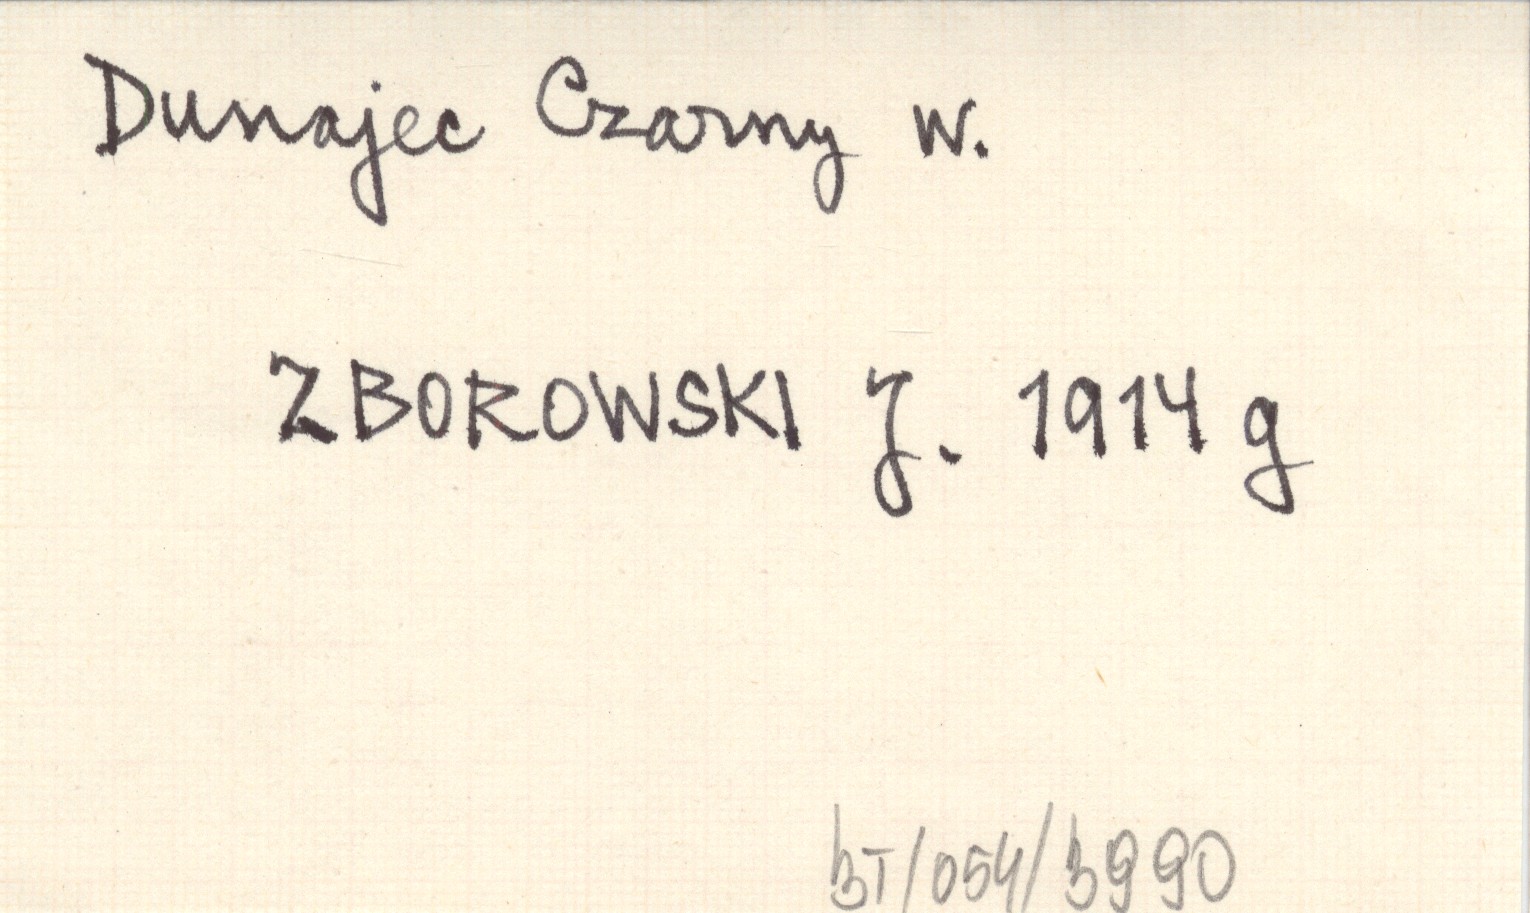 Dunajec Czarny w.
ZBOROWSKI J. 1914 g
BT/054/3990